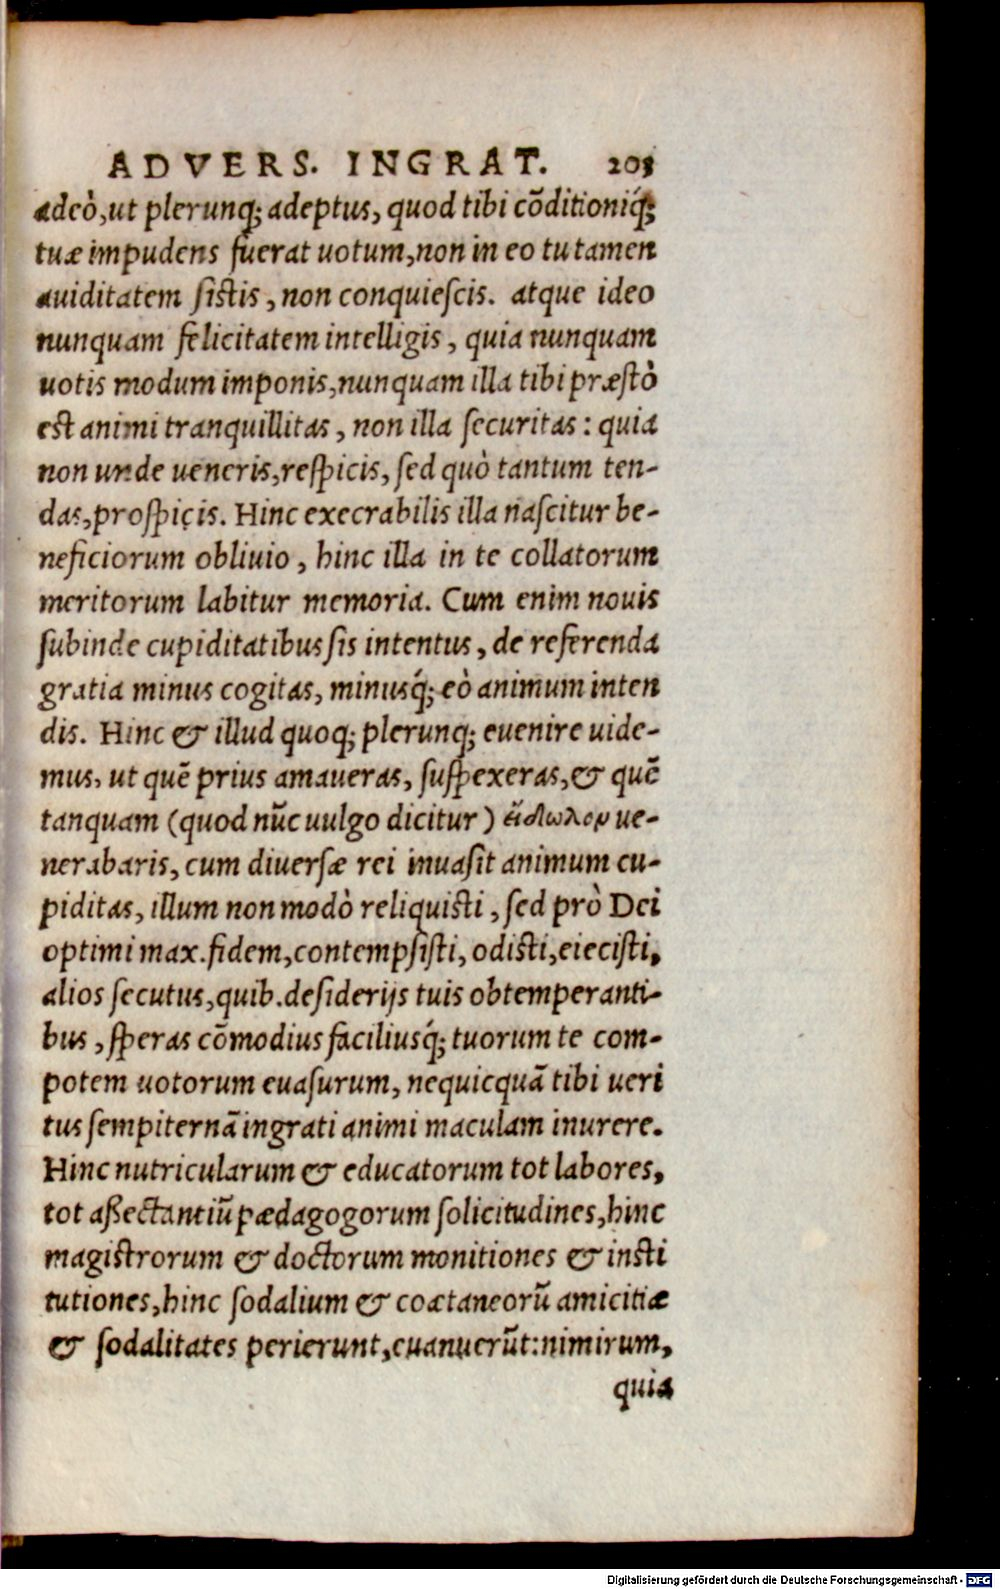 ADVERS. INGRAT. 205
adeò, ut plerunq; adeptus, quod tibi cõditioniq́;
tuæ impudens fuerat uotum, non in eo tu tamen
auiditatem ſiſtis, non conquieſcis. atque ideo
nunquam felicitatem intelligis, quia nunquam
uotis modum imponis, nunquam illa tibi præſtò
eſt animi tranquillitas, non illa ſecuritas: quia
non unde ueneris, reſpicis, ſed quò tantum ten-
das, proſpicis. Hinc execrabilis illa naſcitur be-
neficiorum obliuio, hinc illa in te collatorum
meritorum labitur memoria. Cum enim nouis
ſubinde cupiditatibus ſis intentus, de referenda
gratia minus cogitas, minusq́; eò animum inten
dis. Hinc & illud quoq; plerunq; euenire uide-
mus, ut quẽ prius amaueras, ſuſpexeras, & quẽ
tanquam (quod nũc uulgo dicitur) εἴδωλον ue-
nerabaris, cum diuerſæ rei inuaſit animum cu-
piditas, illum non modò reliquiſti, ſed prò Dei
optimi max. fidem, contempſiſti, odiſti, eieciſti,
alios ſecutus, quib. deſiderijs tuis obtemperanti-
bus, ſperas cõmodius faciliusq́; tuorum te com-
potem uotorum euaſurum, nequicquã tibi ueri
tus ſempiternã ingrati animi maculam inurere.
Hinc nutricularum & educatorum tot labores,
tot aſſectantiũ pædagogorum ſolicitudines, hinc
magiſtrorum & doctorum monitiones & inſti
tutiones, hinc ſodalium & coætaneorũ amicitiæ
& ſodalitates perierunt, euanuerũt: nimirum,
quia
Digitalisierung gefördert durch die Deutsche Forschungsgemeinschaft - DFG